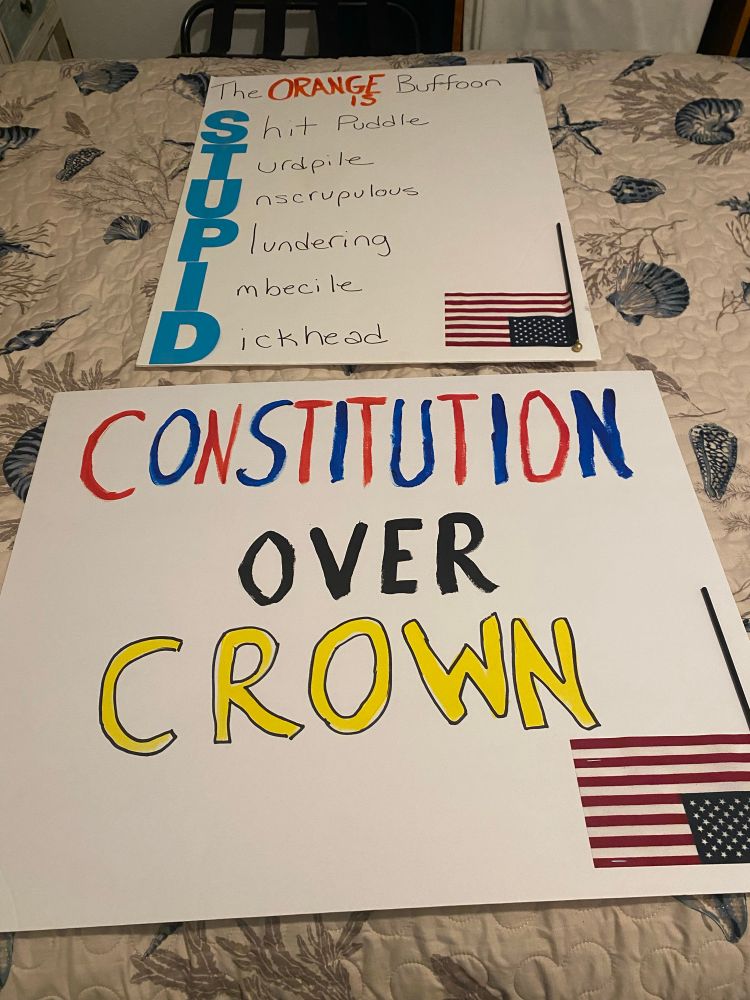 The ORANGE Buffoon
IS
Shit Puddle
Turdpile
Unscrupulous
Plundering
Imbecile
Dickhead
CONSTITUTION
OVER
CROWN